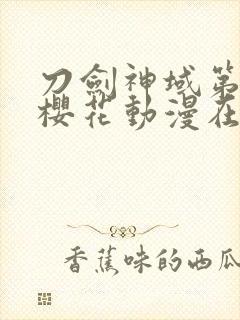 刀劍神域第
櫻花動漫在
香蕉味的西瓜